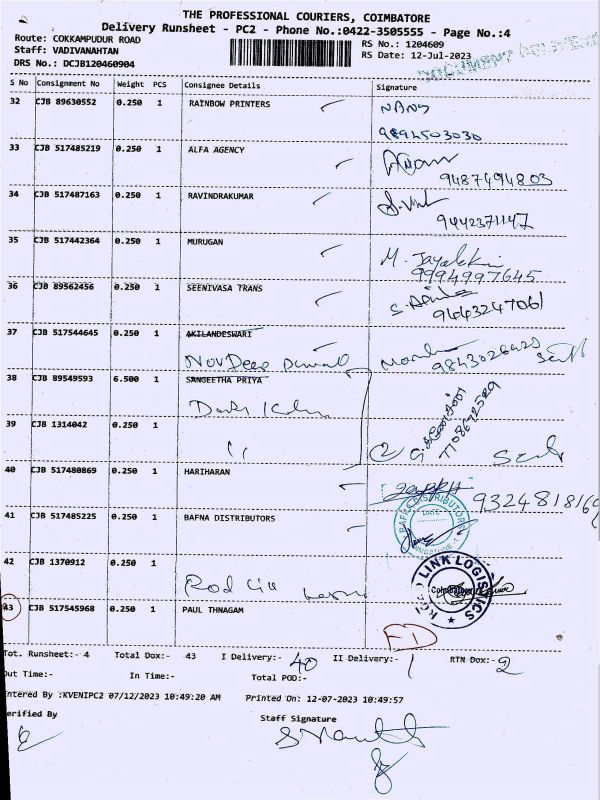 THE PROFESSIONAL COURIERS, COIMBATORE
Delivery Runsheet - PC2 - Phone No.:0422-3505555 - Page No.:4
Route: COKKAMPUDUR ROAD
RS No.: 1204609
Staff: VADIVANAHTAN
RS Date: 12-Jul-2023
DRS No.: DCJB120460904
S No Consignment No Weight PCS Consignee Details Signature
32 CJB 89630552 0.250 1 RAINBOW PRINTERS
9894503030
33 CJB 517485219 0.250 1 ALFA AGENCY
9487494803
34 CJB 517487163 0.250 1 RAVINDRAKUMAR
9442371147
35 CJB 517442364 0.250 1 MURUGAN
9994997645
36 CJB 89562456 0.250 1 SEENIVASA TRANS
9443247061
37 CJB 517544645 0.250 1 AKILANDESWARI
9843026420
38 CJB 89549593 6.500 1 SANGEETHA PRIYA
7708672529
39 CJB 1314042 0.250 1
40 CJB 517480869 0.250 1 HARIHARAN
41 CJB 517485225 0.250 1 BAFNA DISTRIBUTORS
BAFNA DISTRIBUTORS
42 CJB 1370912 0.250 1
LINK LOGISTICS
Coimbatore
43 CJB 517545968 0.250 1 PAUL THNAGAM
Tot. Runsheet:- 4 Total Dox:- 43 I Delivery:- 40 II Delivery:- 1 RTN Dox:- 2
Out Time:- In Time:- Total POD:-
Entered By :KVENIPC2 07/12/2023 10:49:20 AM Printed On: 12-07-2023 10:49:57
Verified By Staff Signature